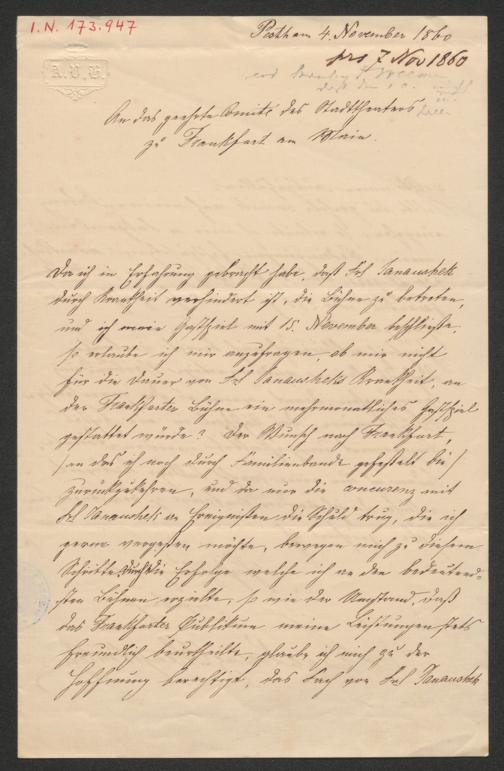 I.N. 173.947
Pesth am 4. November 1860
prs 7 Nov 1860
A.V.B.
An das geehrte Comité des Stadttheaters
zu Frankfurt am Main.
Da ich in Erfahrung gebracht habe, daß Frl Janauschek
durch Krankheit verhindert ist, die Bühne zu betreten,
und ich mein Gastspiel mit 15. November beschließe,
so erlaube ich mir anzufragen, ob mir nicht
für die Dauer von Frl Janauscheks Krankheit, an
der Frankfurter Bühne ein mehrmonatliches Gastspiel
gestattet würde? Der Wunsch nach Frankfurt,
/an das ich noch durch Familienbande gefesselt bin/
zurückzukehren, und da nur die Concurenz mit
Frl Janauschek an Ereignißen die Schuld trug, die ich
gerne vergessen möchte, bewegen mich zu diesem
Schritte. Durch die Erfolge welche ich an den bedeutend-
sten Bühnen erzielte, so wie der Umstand, daß
das Frankfurter Publikum meine Leistungen stets
freundlich beurtheilte, glaube ich mich zu der
Hoffnung berechtigt, das Fach von Frl Janauschek